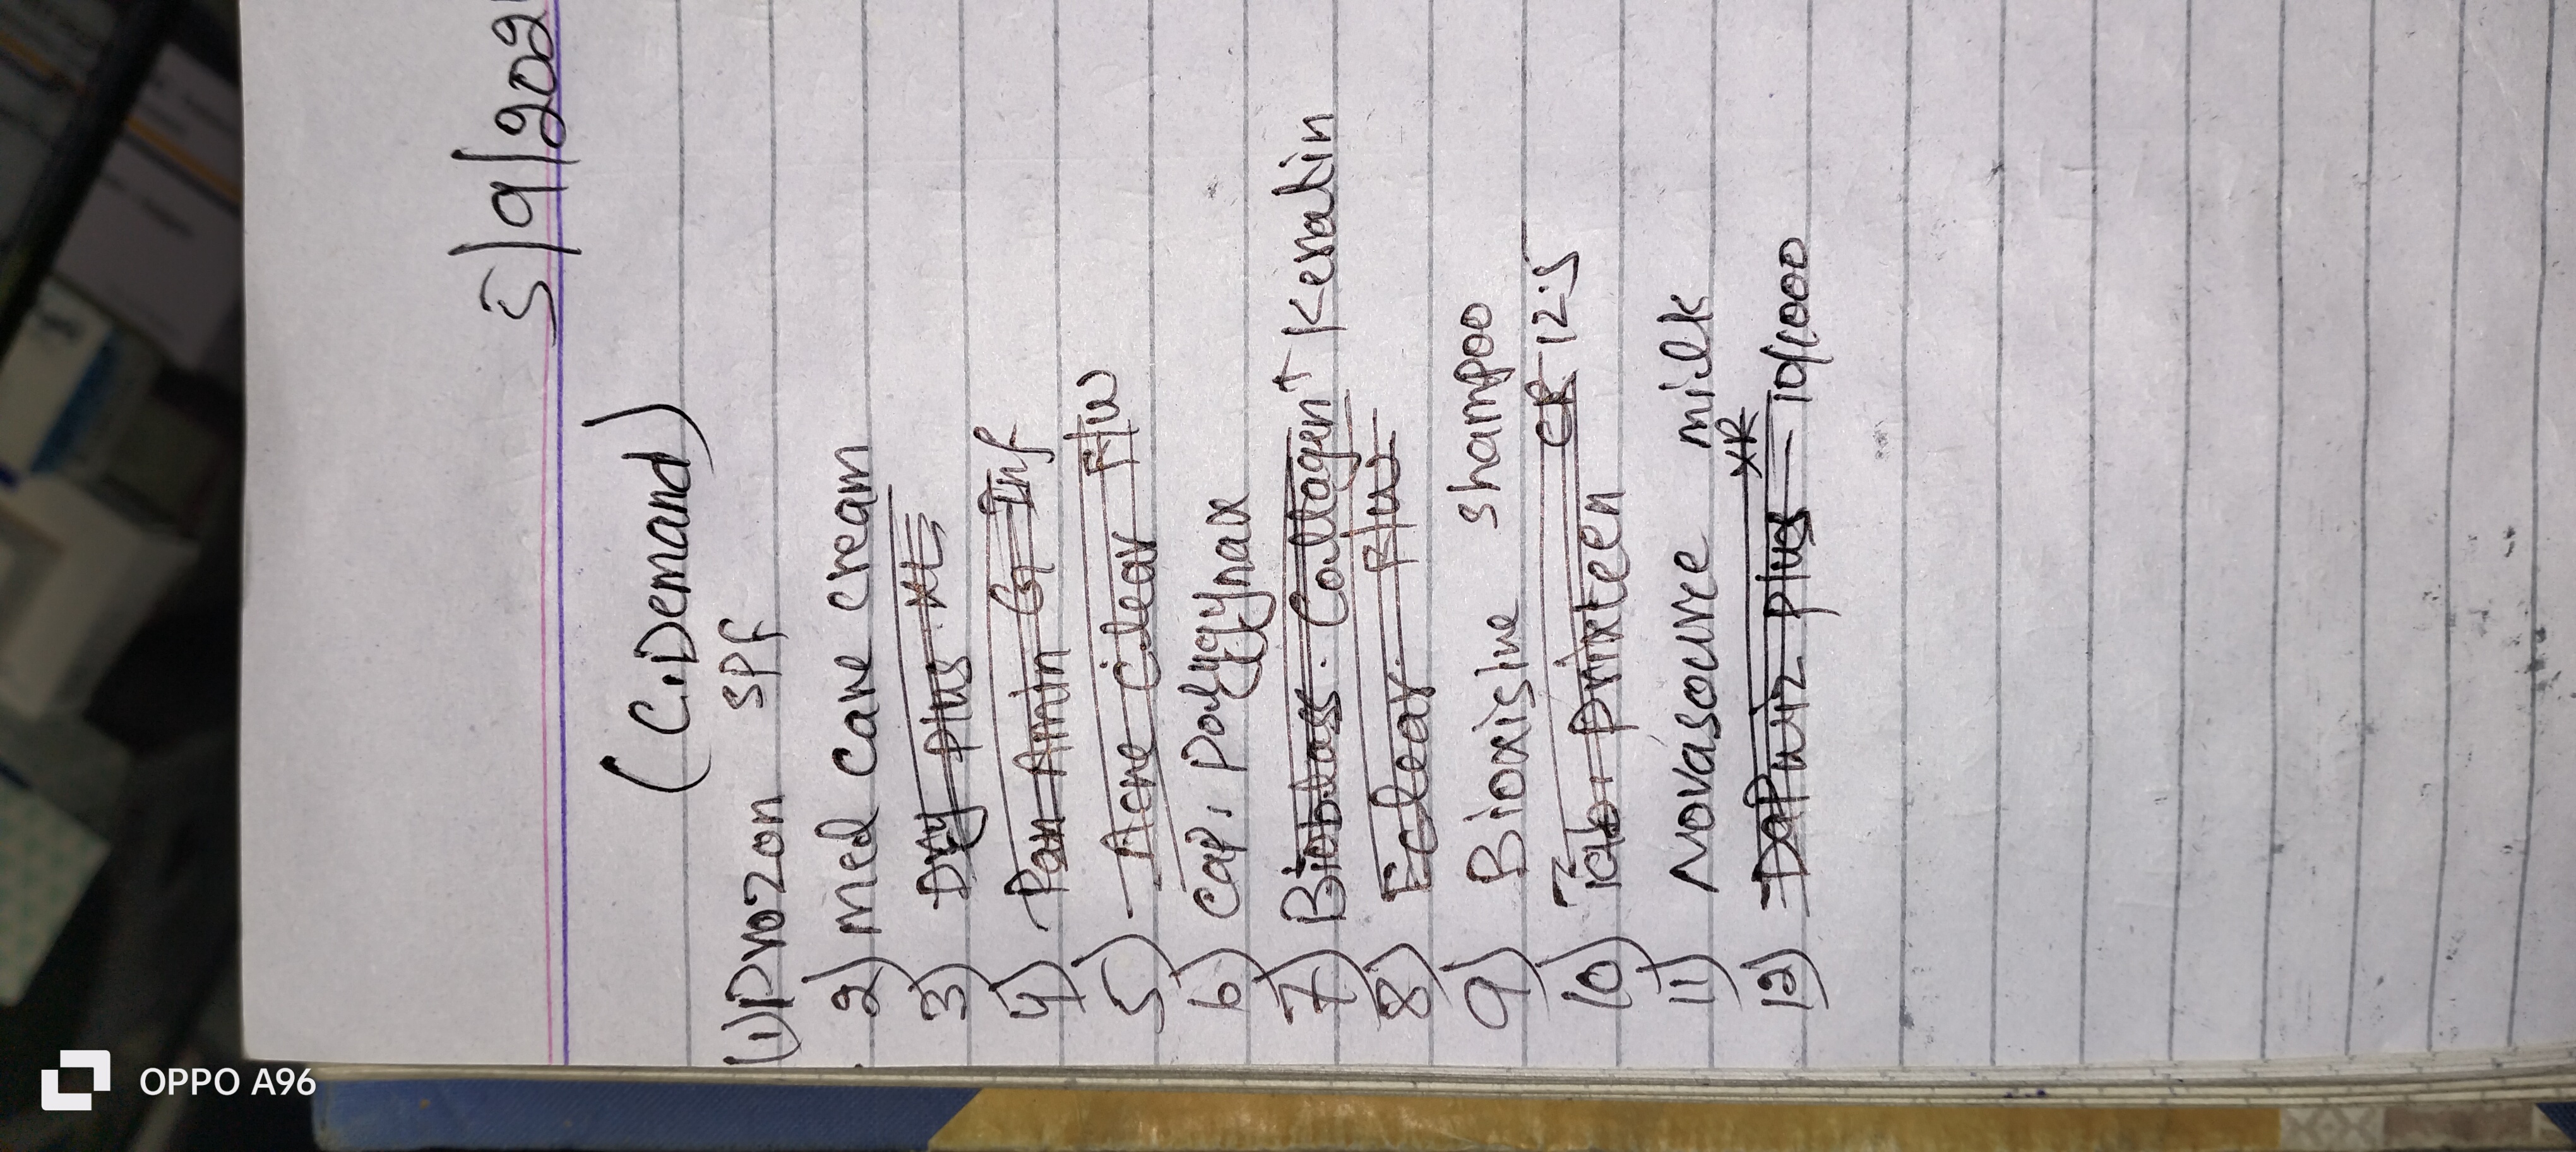 5/9/202
(C.Demand)
(1) Prozon SPF
2) Med Care Cream
3) Dey Plus XL
4) Pan Amin G Inf
5) Acne Clear F/W
6) Cap. Polygynax
7) Biobalass. Collagen + Keralin
8) Eclear F/W
9) Bioxisine Shampoo
10) Tab. Prixteen CR 12.5
11) Novasource milk
12) DaPwiz Plus XR 10/1000
OPPO A96